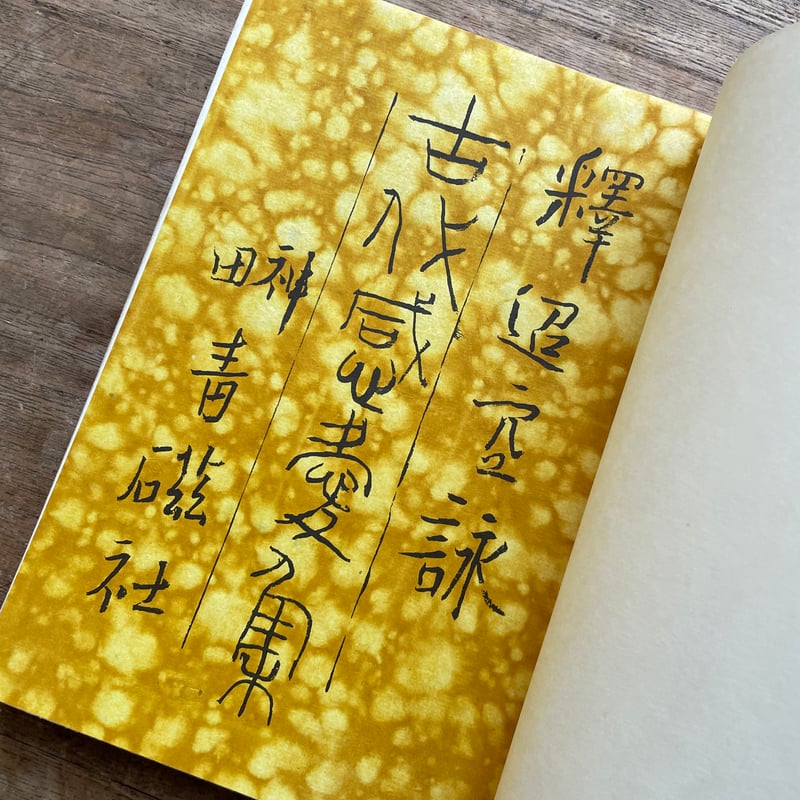 釋迢空詠
古代感愛集
神田
青磁社